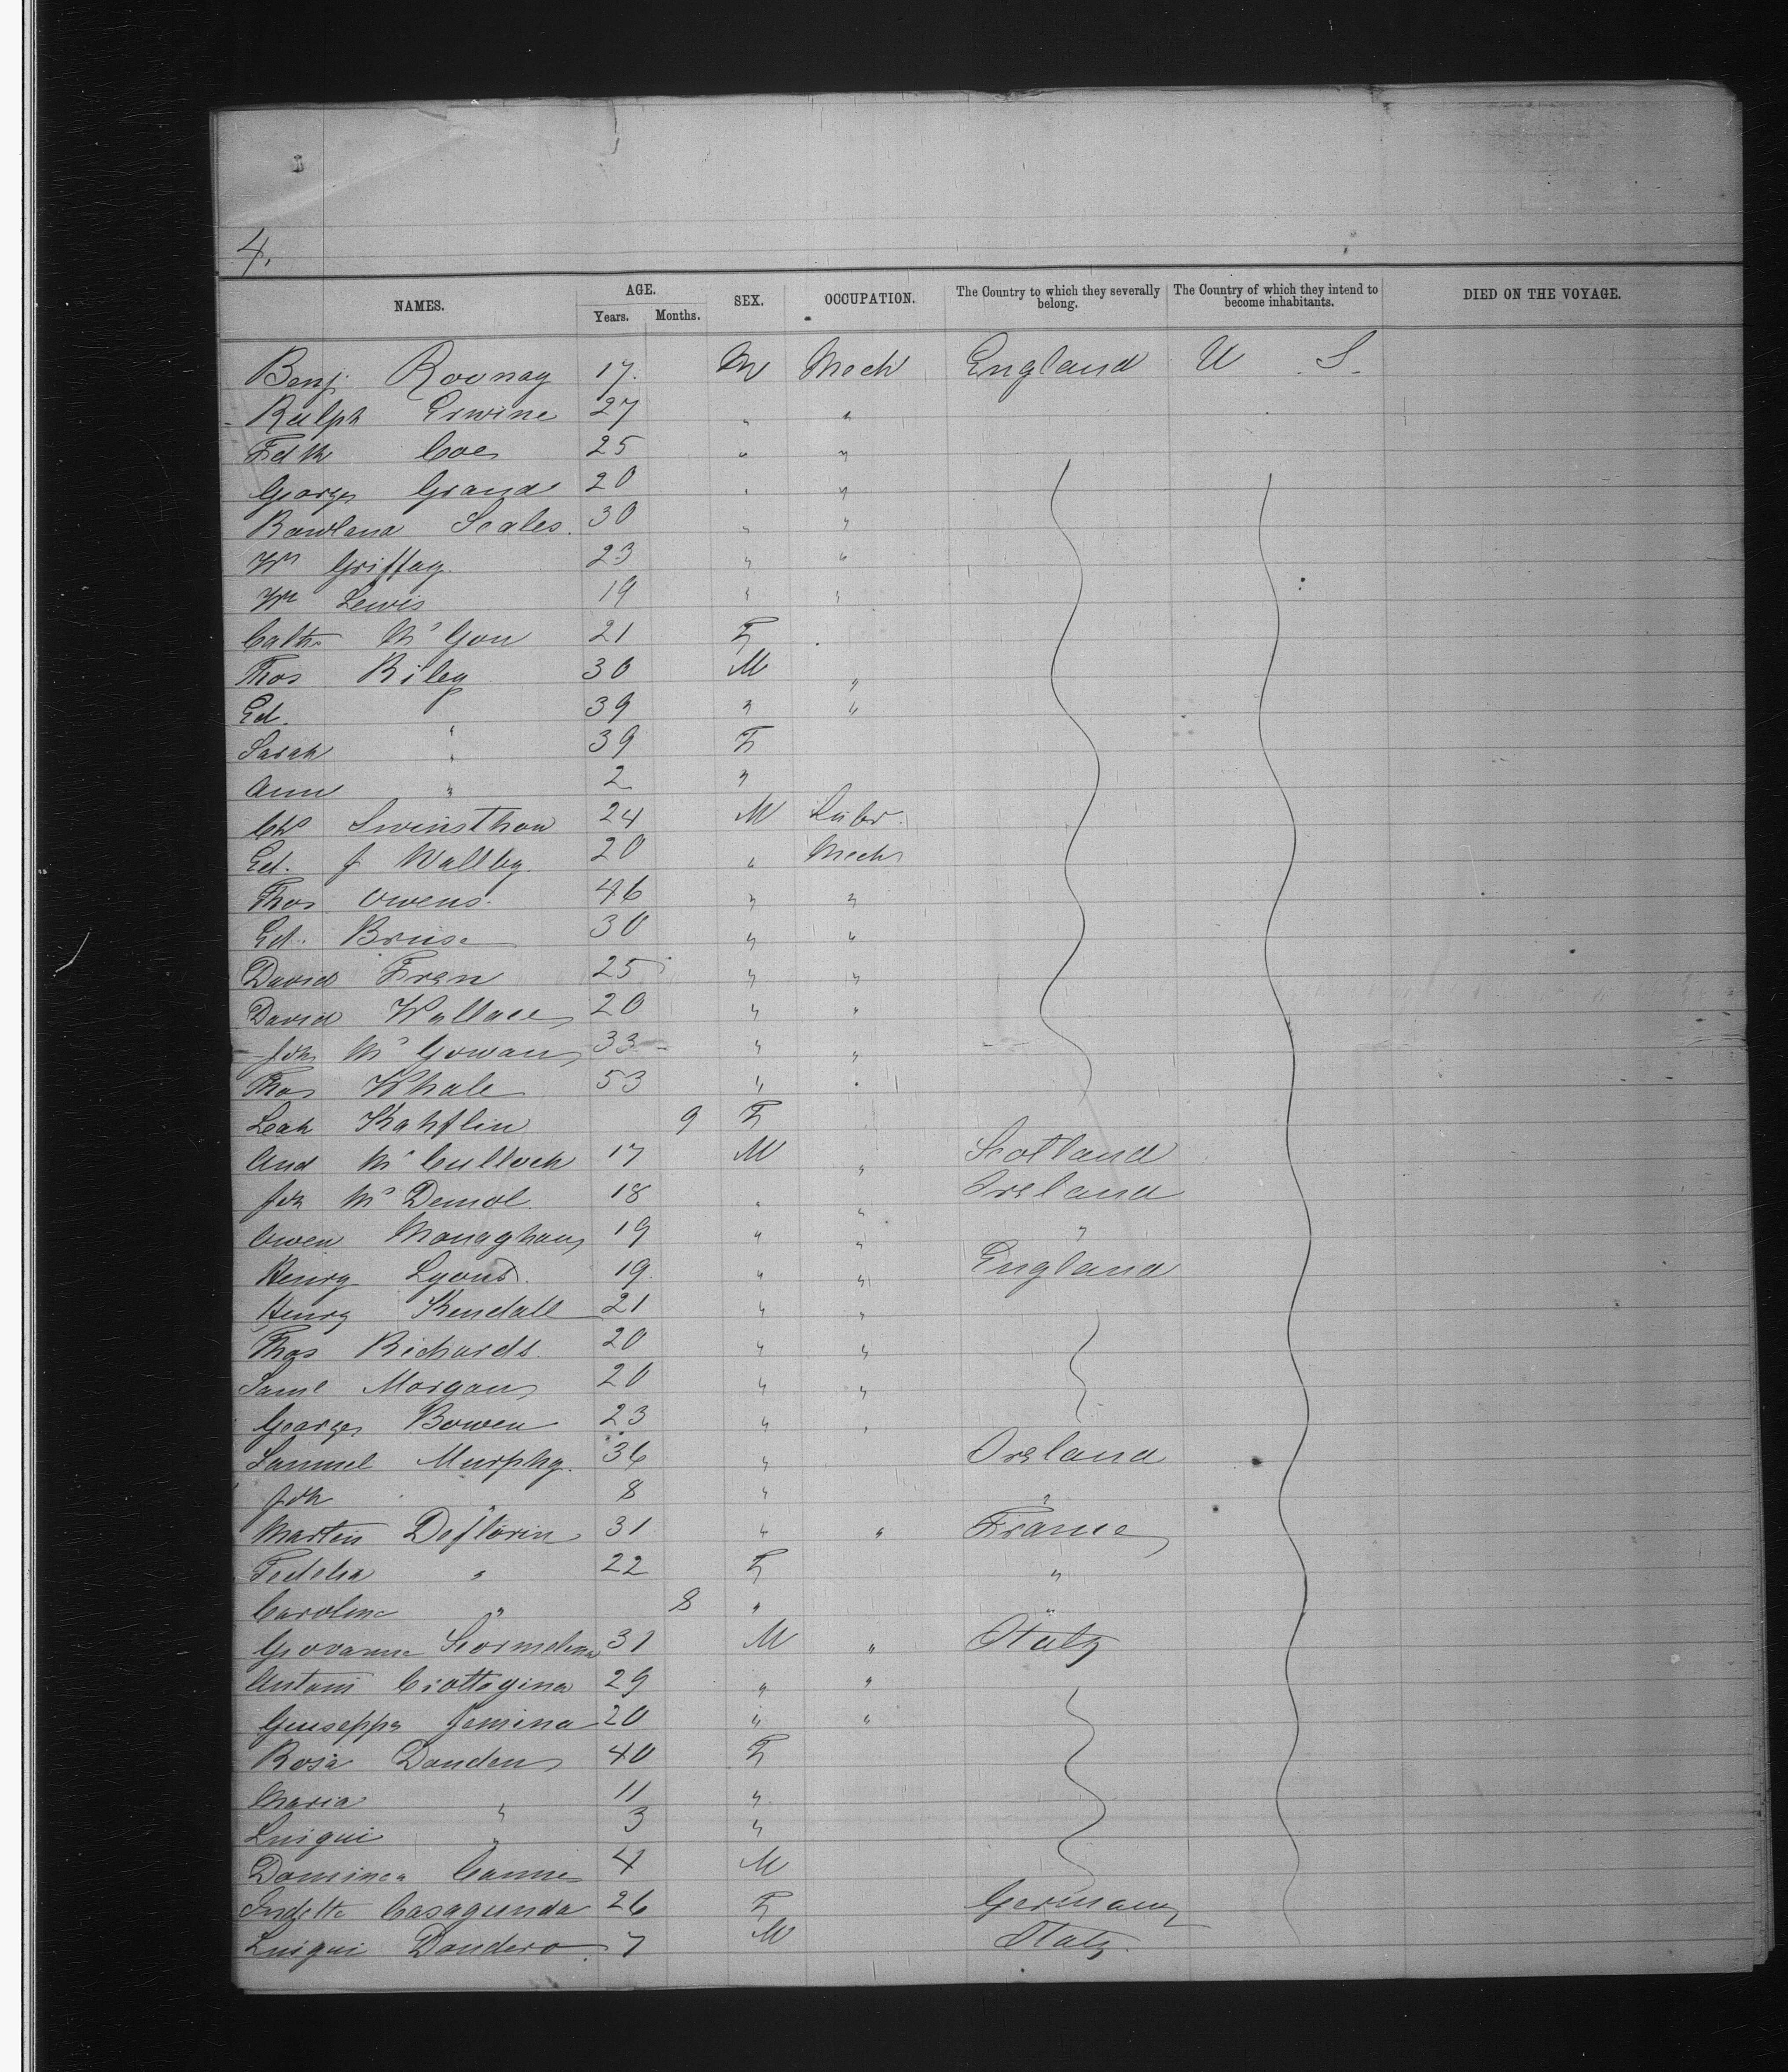 4.
NAMES. AGE. Years. Months. SEX. OCCUPATION. The Country to which they severally belong. The Country of which they intend to become inhabitants. DIED ON THE VOYAGE.
Benj. Roonay 17. M Mech England U S.
Ralph Erwine 27 " "
Fdk Coe 25 " "
George Grand 20 " "
Rowland Scales. 30 " "
Wm Griffay 23 " "
Wm Lewis 19 " "
Cath McGou 21 F
Thos Riley 30 M "
Ed. " 39 " "
Sarah " 39 F
Ann " 2 "
Swinsthow 24 M Labr.
Ed. J Wallby. 20 " Mech
Thos Owens. 46 " "
Ed. Bruse 30 " "
David Fren 25 " "
David Wallace 20 " "
Joh McGowan 33 " "
Thos Whale 53 " "
Leah Kahflin 9 F
And McCulloch 17 M " Scotland
Joh McDemol. 18 " " Ireland
Owen Monaghan 19 " " "
Henry Lyons. 19. " " England
Henry Kendall 21 " "
Thos Richards. 20 " "
Saml Morgan 20 " "
George Bowen 23 " "
Samuel Murphy. 36 " Ireland
Joh " 8 " "
Martin Deflorin 31 " " France
Fedelia " 22 F "
Caroline " 8 " "
Giovanne 31 M " Italy
Antoni Ciottogina 29 " "
Giuseppe Jemina 20 " "
Rosa Donden 40 F
Maria " 11 "
Luigui " 3 "
Dominca Canne 4 M
Casagunda 26 F Germany
Luigui Dondero 7 M Italy.